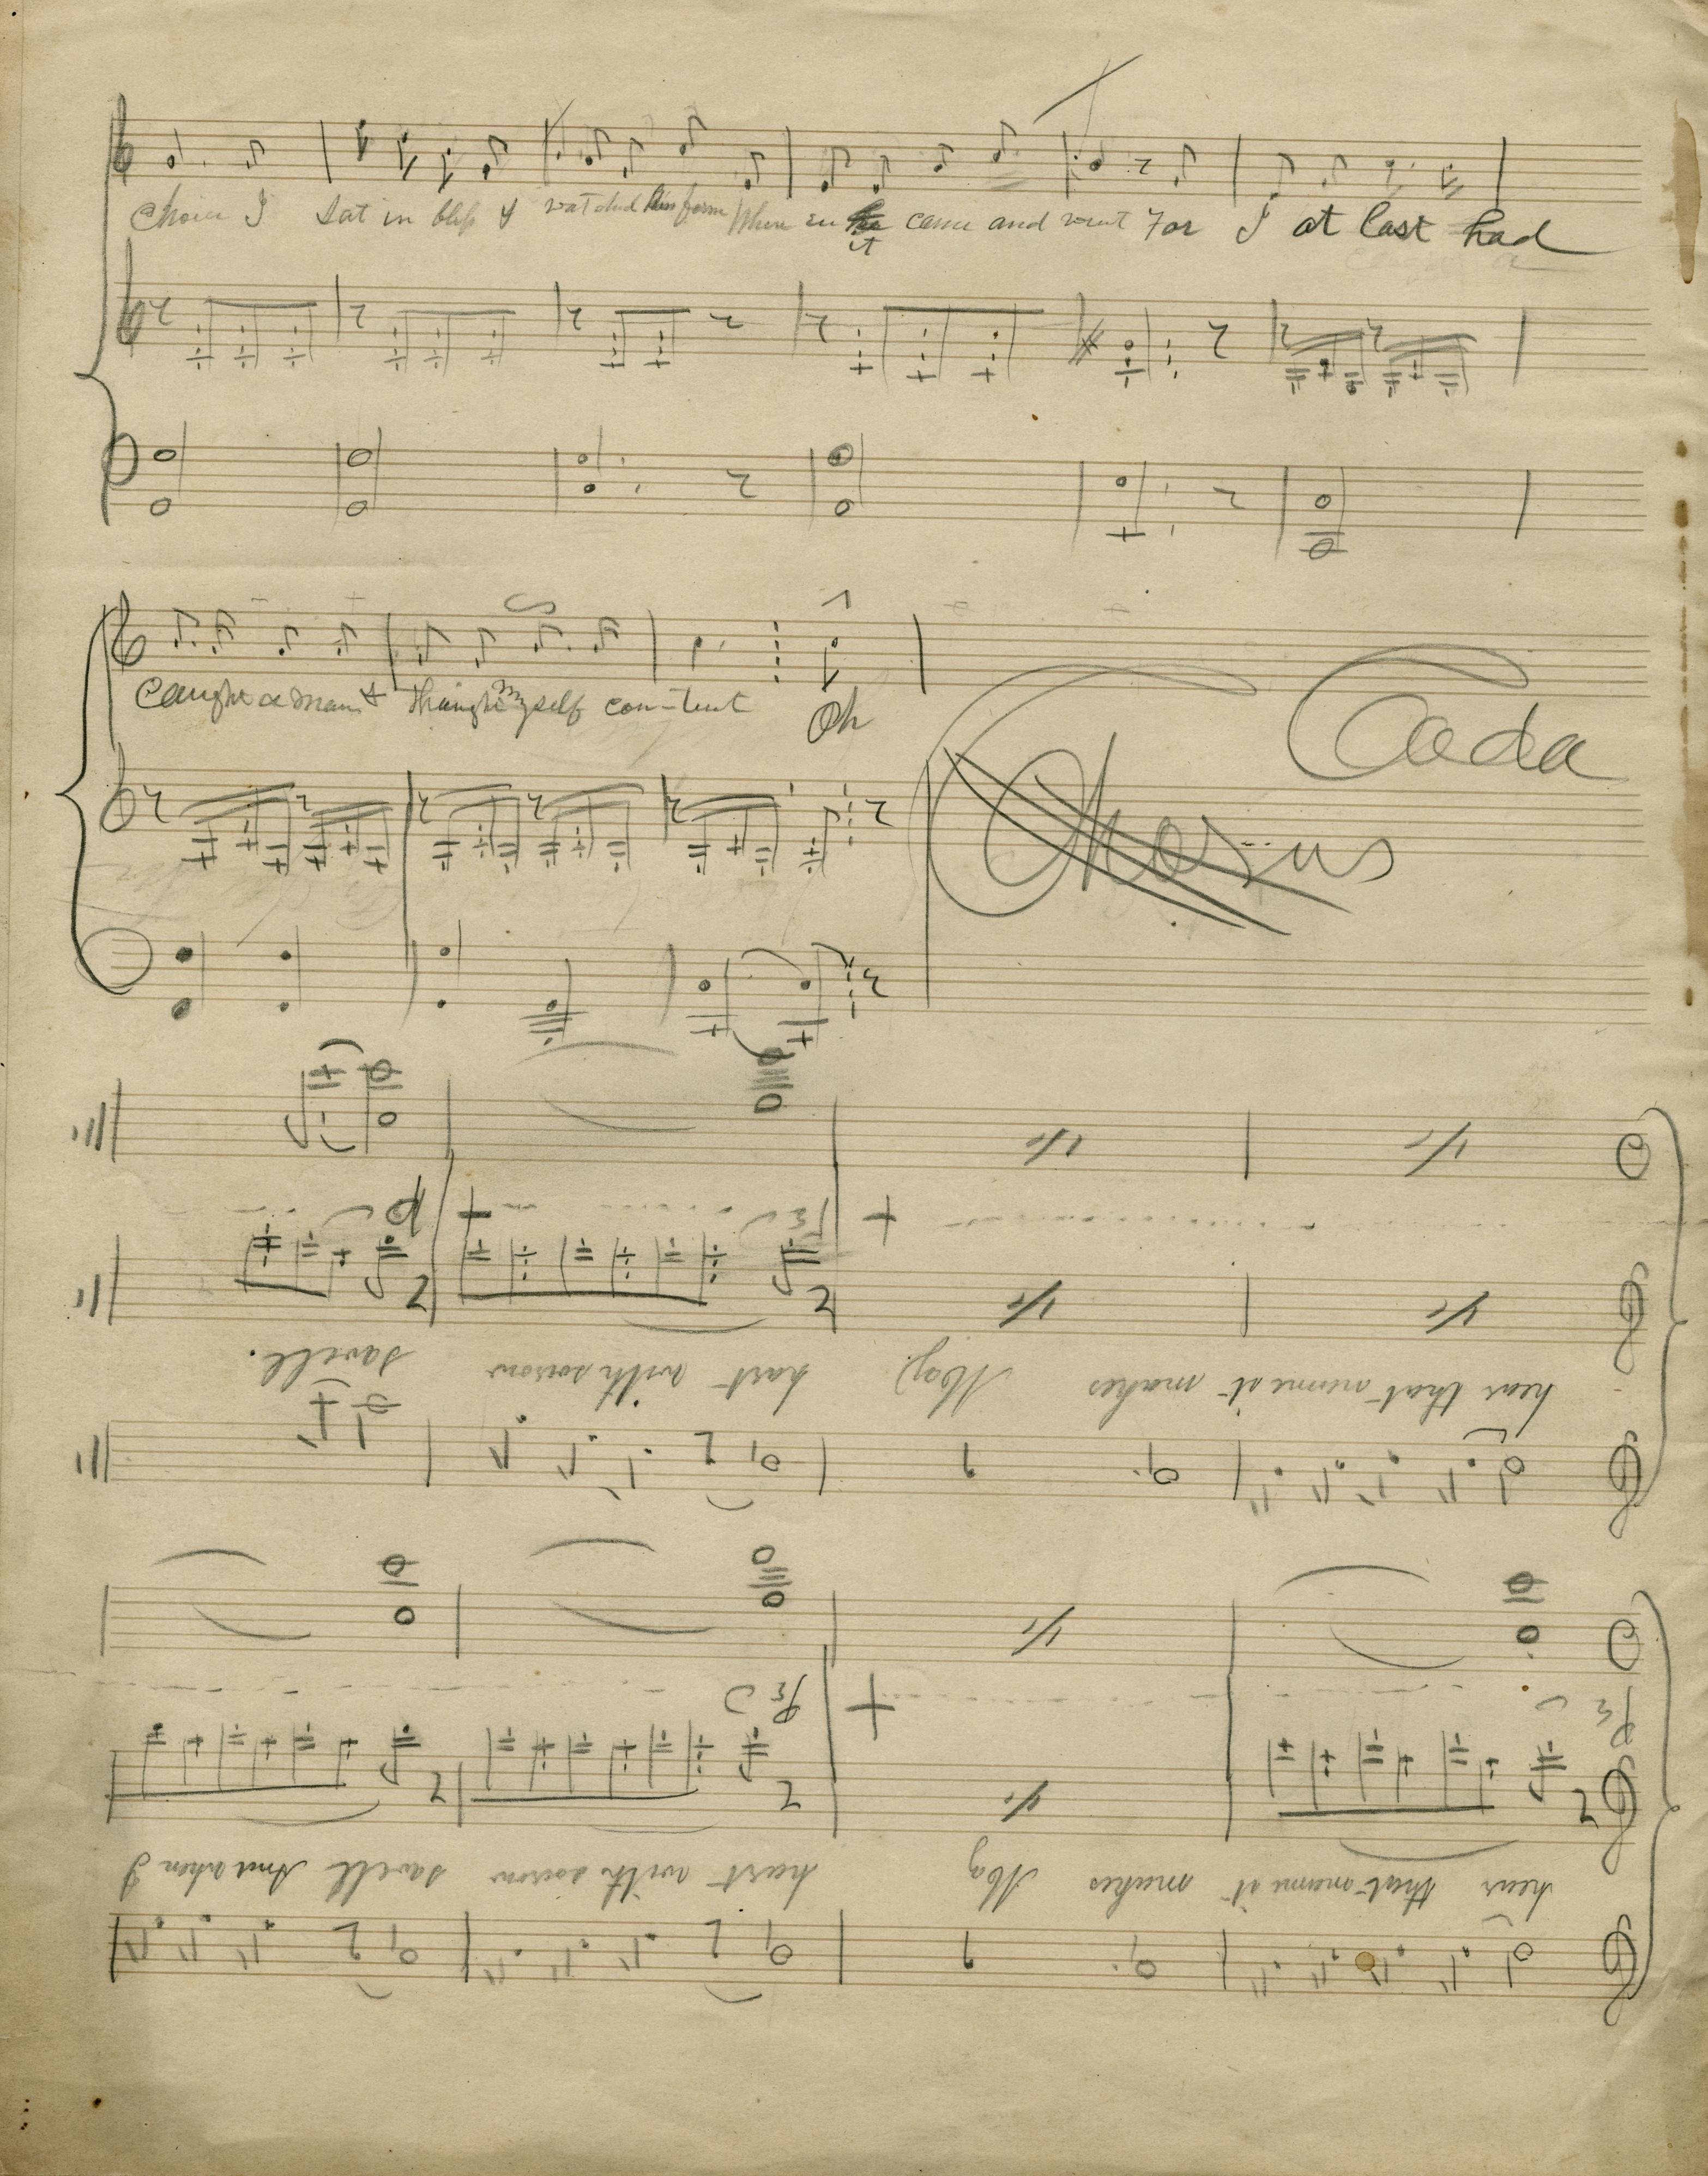 Choice I sat in bliss & watched his form When ere he it came and went For I at last had
Caught a man & thought myself con-tent Oh
Coda
Chorus
hear that name it makes My hart with sorrow swell And when I
hear that name it makes My hart with sorrow swell.